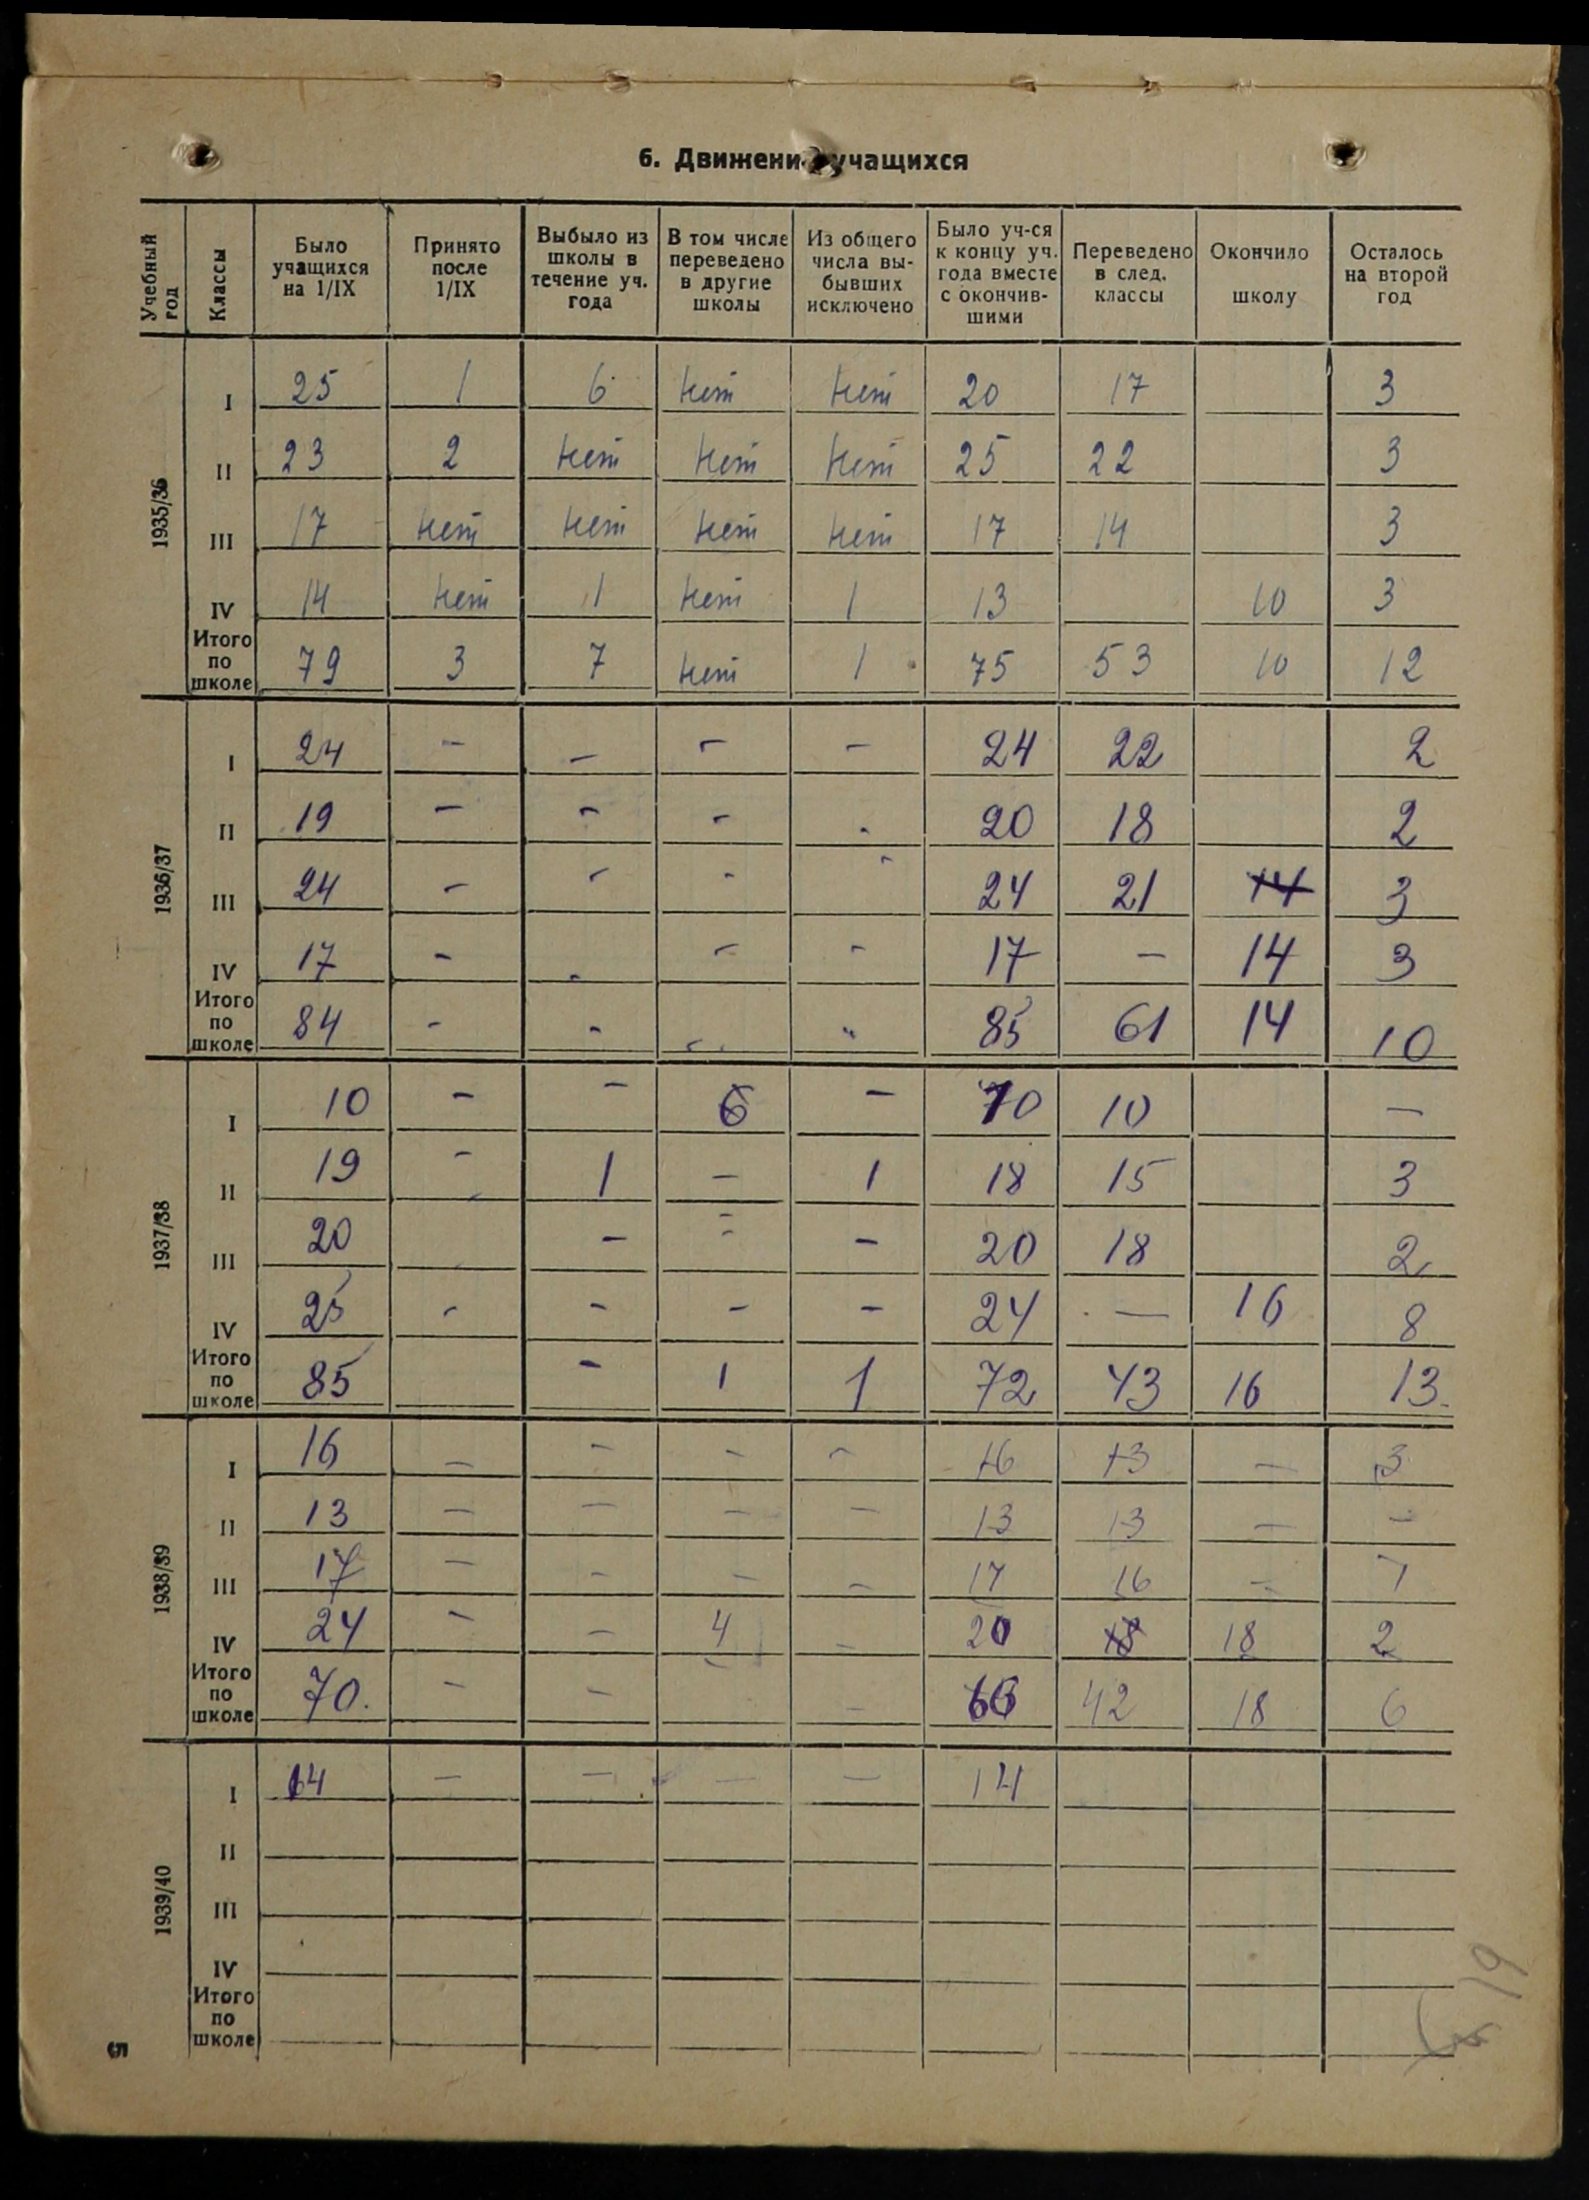 6. Движени учащихся
Учебный год | Классы | Было учащихся на 1/IX | Принято после 1/IX | Выбыло из школы в течение уч. года | В том числе переведено в другие школы | Из общего числа вы-бывших исключено | Было уч-ся к концу уч. года вместе с окончив-шими | Переведено в след. классы | Окончило школу | Осталось на второй год
1935/36
I 25 1 6 нет нет 20 17 3
II 23 2 нет нет нет 25 22 3
III 17 нет нет нет нет 17 14 3
IV 14 нет 1 нет 1 13 10 3
Итого по школе 79 3 7 нет 1 75 53 10 12
1936/37
I 24 - - - - 24 22 2
II 19 - - - - 20 18 2
III 24 - - - - 24 21 14 3
IV 17 - - - - 17 - 14 3
Итого по школе 84 - - - " 85 61 14 10
1937/38
I 10 - - 6 - 10 10 -
II 19 - 1 - 1 18 15 3
III 20 - - - 20 18 2
IV 25 - - - - 24 - 16 8
Итого по школе 85 - 1 1 72 43 16 13
1938/39
I 16 - - - - 16 13 - 3
II 13 - - - - 13 13 - -
III 17 - - - - 17 16 - 1
IV 24 - - 4 - 20 18 18 2
Итого по школе 70. - - - - 66 42 18 6
1939/40
I 14 - - - - 14
II
III
IV
Итого по школе
5
19